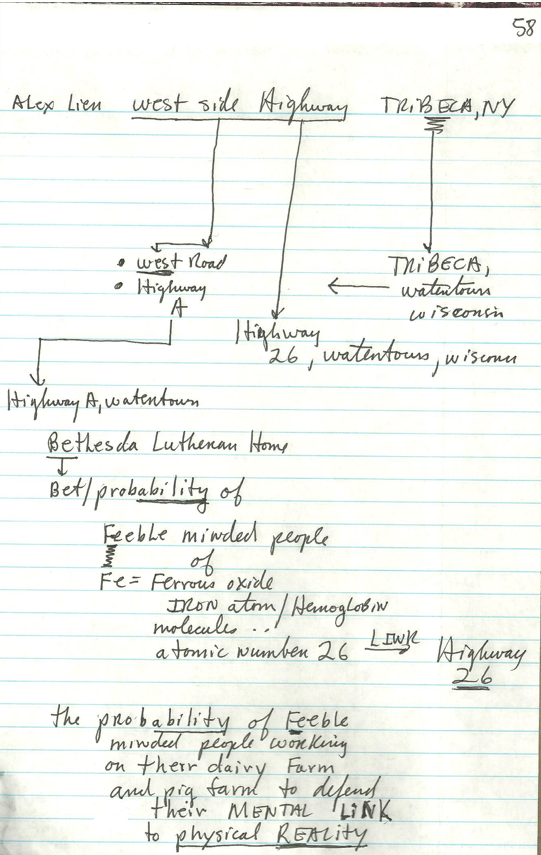 58
Alex Lien west side Highway TRiBECA, NY
• west Road
• Highway
A
TRiBECA,
watertown
wisconsin
Highway
26, watertown, wisconsin
Highway A, watertown
Bethesda Lutheran Home
Bet/probability of
Feeble minded people
of
Fe = Ferrous oxide
IRON atom/Hemoglobin
molecules...
atomic number 26 LINK Highway
26
the probability of Feeble
minded people working
on their dairy Farm
and pig farm to defend
their MENTAL LiNK
to physical REALITY